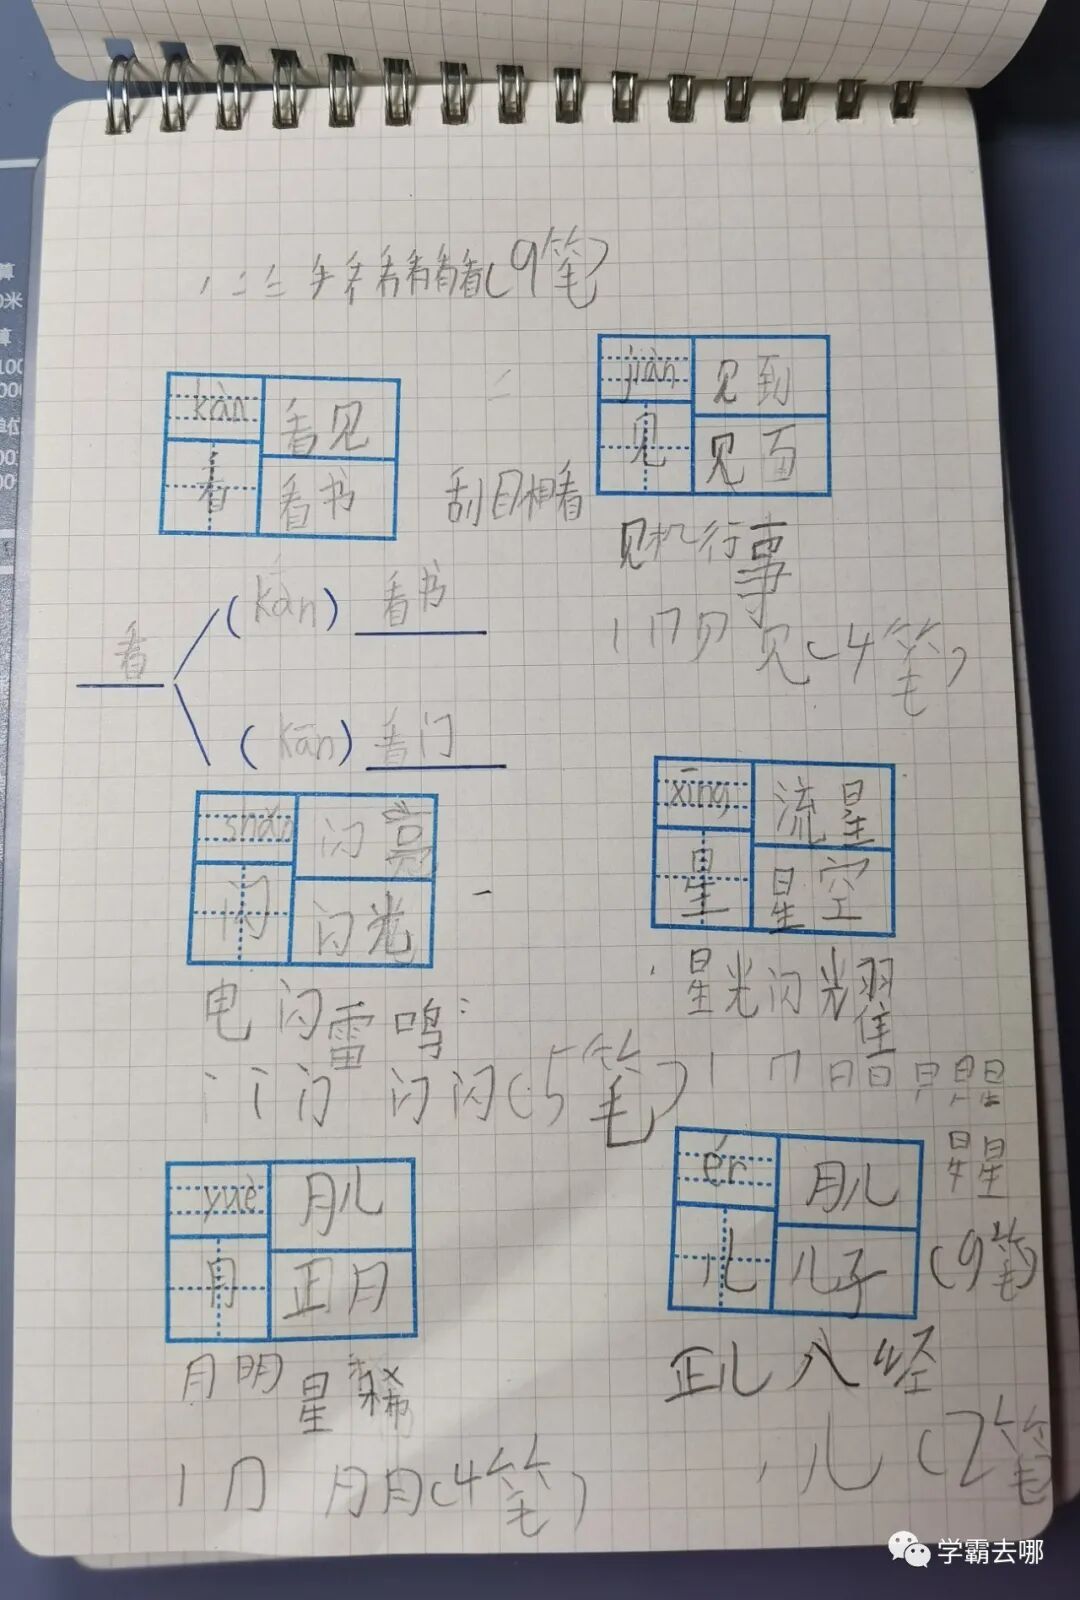 (9笔)
kàn
看见
看
看书
jiàn
见到
见
见面
刮目相看
见机行事
见(4笔)
看
(kàn) 看书
(kān) 看门
shǎn
闪亮
闪
闪光
xīng
流星
星
星空
电闪雷鸣
星光闪耀
闪闪(5笔)
星
(9笔)
yuè
月儿
月
正月
ér
月儿
儿
儿子
月明星稀
正儿八经
月月(4笔)
儿(2笔)
学霸去哪